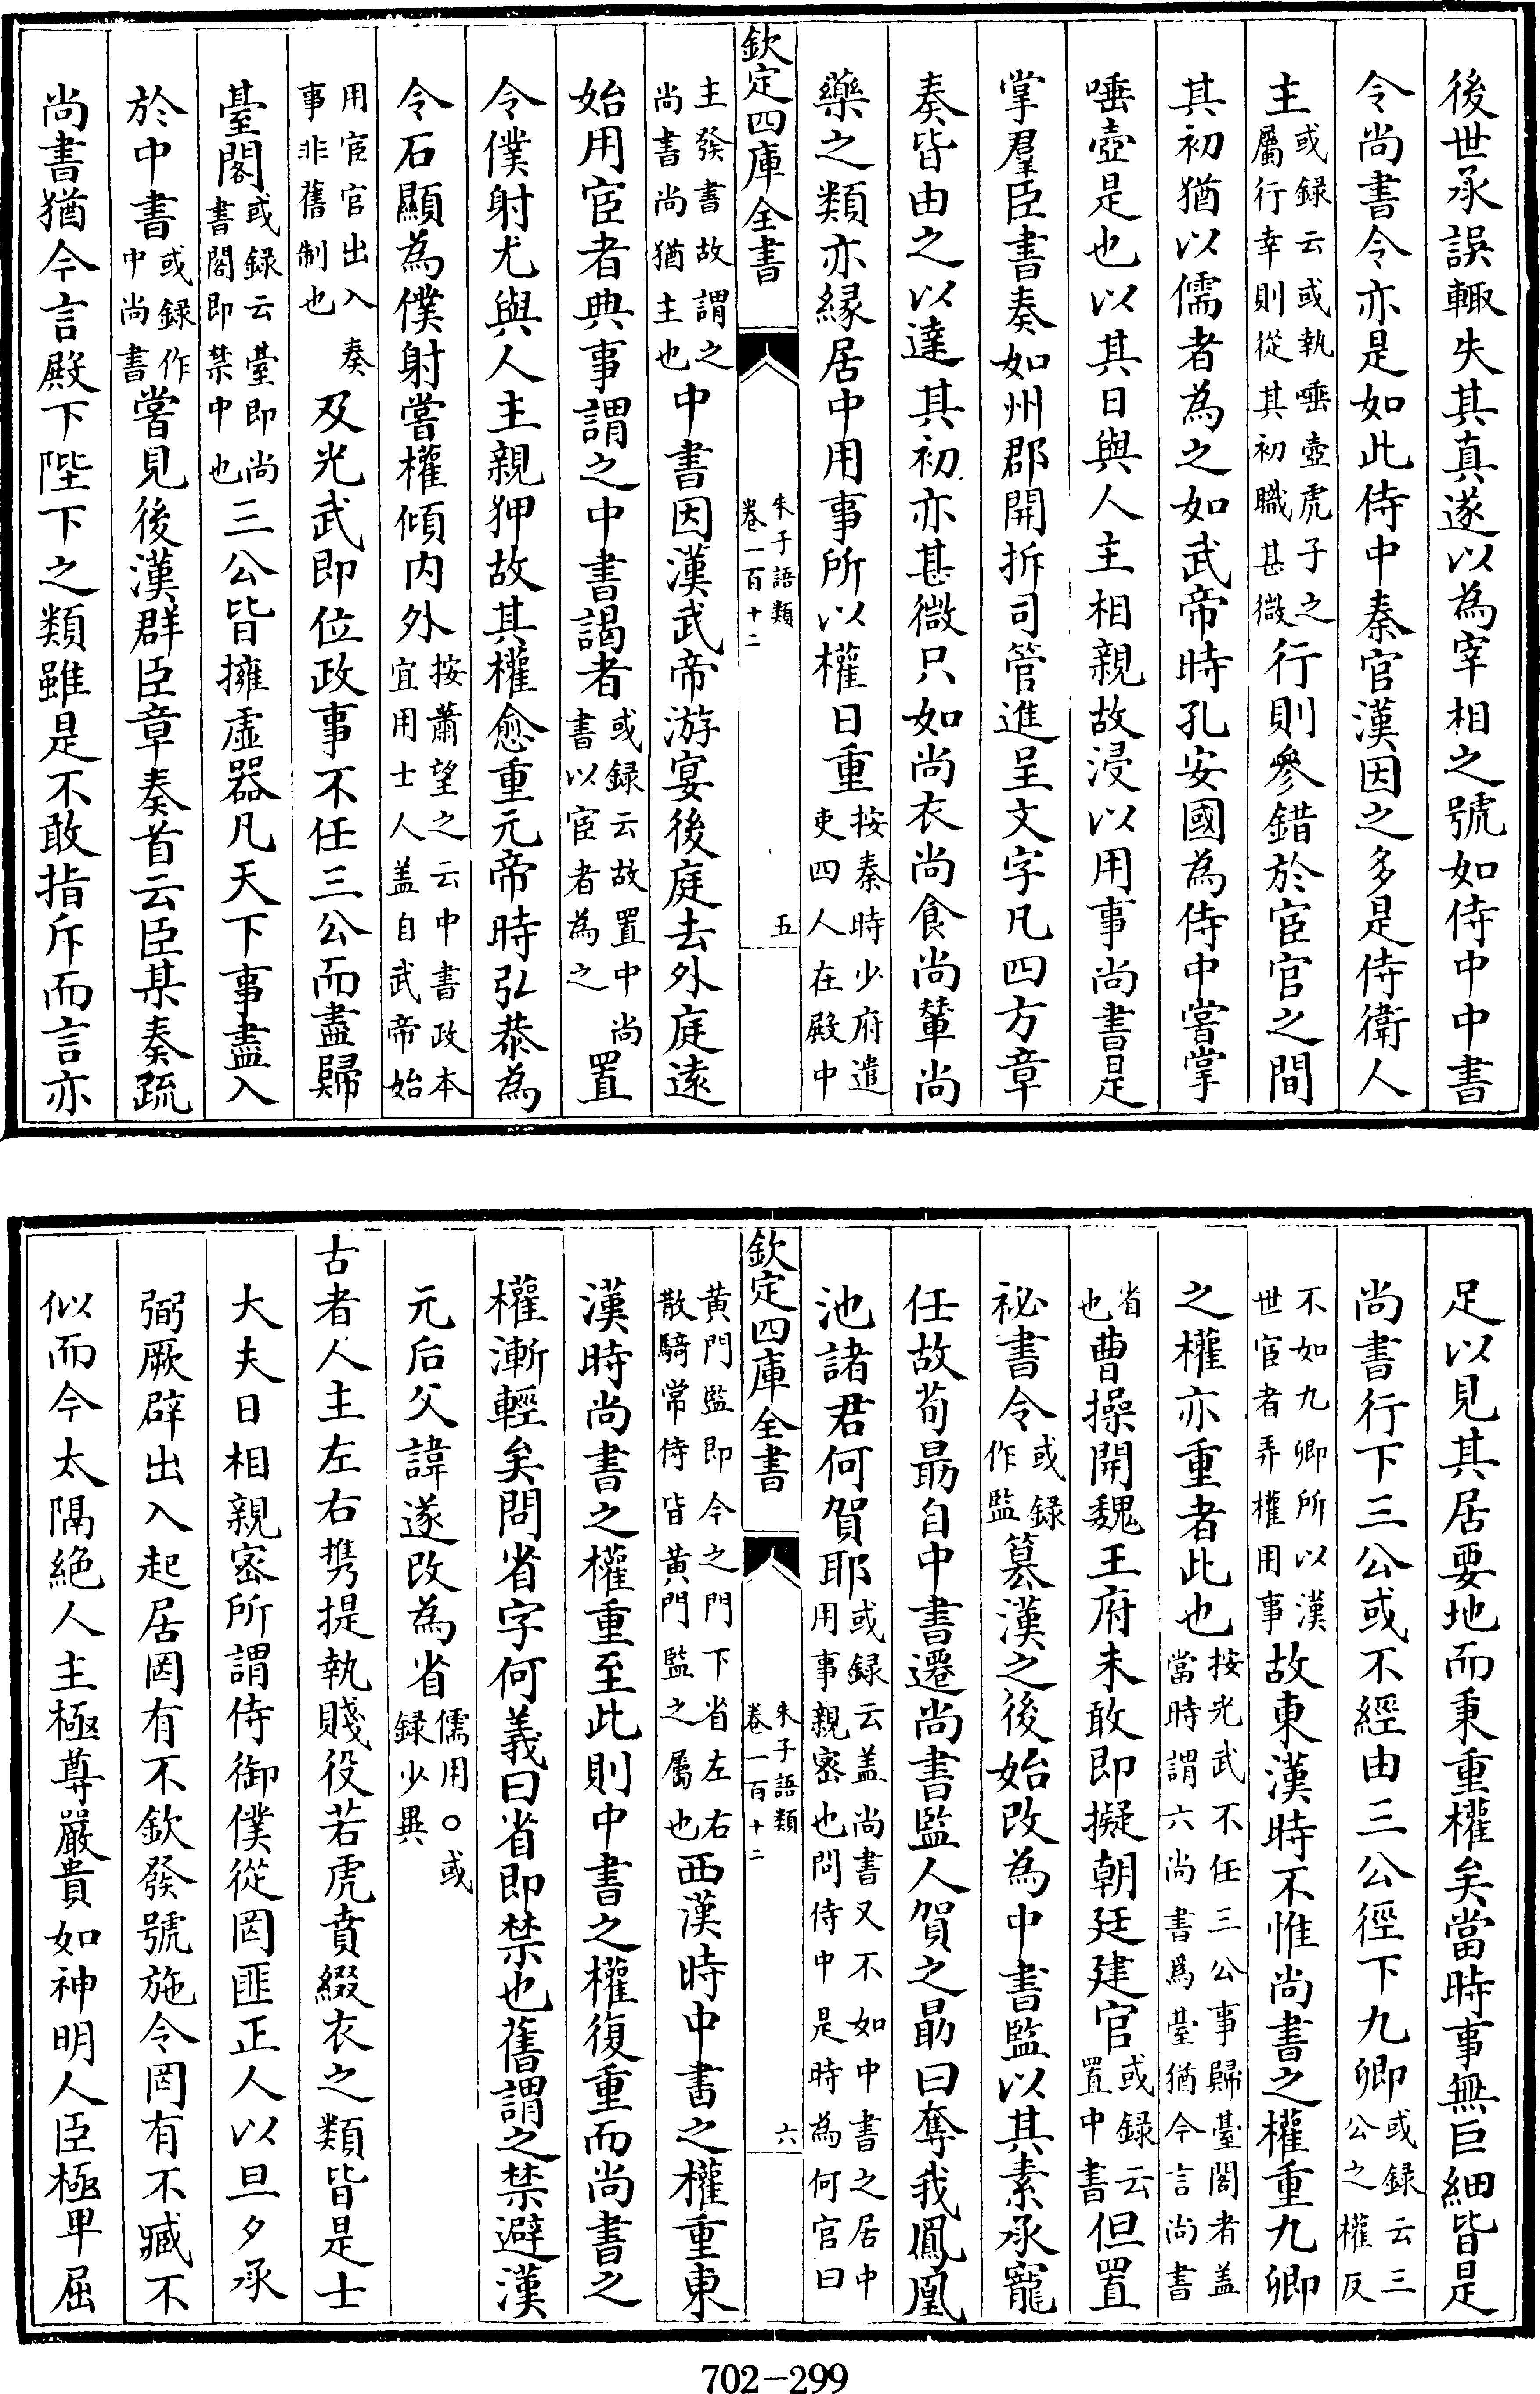 後世承誤輙失其真遂以為宰相之號如侍中中書
令尚書令亦是如此侍中秦官漢因之多是侍衛人
主或録云或執唾壺虎子之屬行幸則從其初職甚微行則參錯於宦官之間
其初猶以儒者為之如武帝時孔安國為侍中嘗掌
唾壺是也以其日與人主相親故浸以用事尚書是
掌羣臣書奏如州郡開拆司管進呈文字凡四方章
奏皆由之以達其初亦甚微只如尚衣尚食尚輦尚
藥之類亦緣居中用事所以權日重按秦時少府遣吏四人在殿中
欽定四庫全書
朱子語類
卷一百十二
五
主發書故謂之尚書尚猶主也中書因漢武帝游宴後庭去外庭遠
始用宦者典事謂之中書謁者或録云故置中尚書以宦者為之置
令僕射尤與人主親狎故其權愈重元帝時弘恭為
令石顯為僕射嘗權傾内外按蕭望之云中書政本宜用士人盖自武帝始
用宦官出入奏事非舊制也及光武即位政事不任三公而盡歸
臺閣或録云臺即尚書閣即禁中也三公皆擁虛器凡天下事盡入
於中書或録作中尚書嘗見後漢群臣章奏首云臣某奏疏
尚書猶今言殿下陛下之類雖是不敢指斥而言亦
足以見其居要地而秉重權矣當時事無巨細皆是
尚書行下三公或不經由三公徑下九卿或録云三公之權反
不如九卿所以漢世宦者弄權用事故東漢時不惟尚書之權重九卿
之權亦重者此也按光武不任三公事歸臺閣者盖當時謂六尚書爲臺猶今言尚書
省也曹操開魏王府未敢即擬朝廷建官或録云置中書但置
祕書令或録作監簒漢之後始改為中書監以其素承寵
任故荀勗自中書遷尚書監人賀之勗曰奪我鳳凰
池諸君何賀耶或録云盖尚書又不如中書之居中用事親密也問侍中是時為何官曰
欽定四庫全書
朱子語類
卷一百十二
六
黄門監即今之門下省左右散騎常侍皆黄門監之屬也西漢時中書之權重東
漢時尚書之權重至此則中書之權復重而尚書之
權漸輕矣問省字何義曰省即禁也舊謂之禁避漢
元后父諱遂改為省儒用○或録少異
古者人主左右携提執賤役若虎賁綴衣之類皆是士
大夫日相親密所謂侍御僕從罔匪正人以旦夕承
弼厥辟出入起居罔有不欽發號施令罔有不臧不
似而今太隔絶人主極尊嚴貴如神明人臣極卑屈
702-299